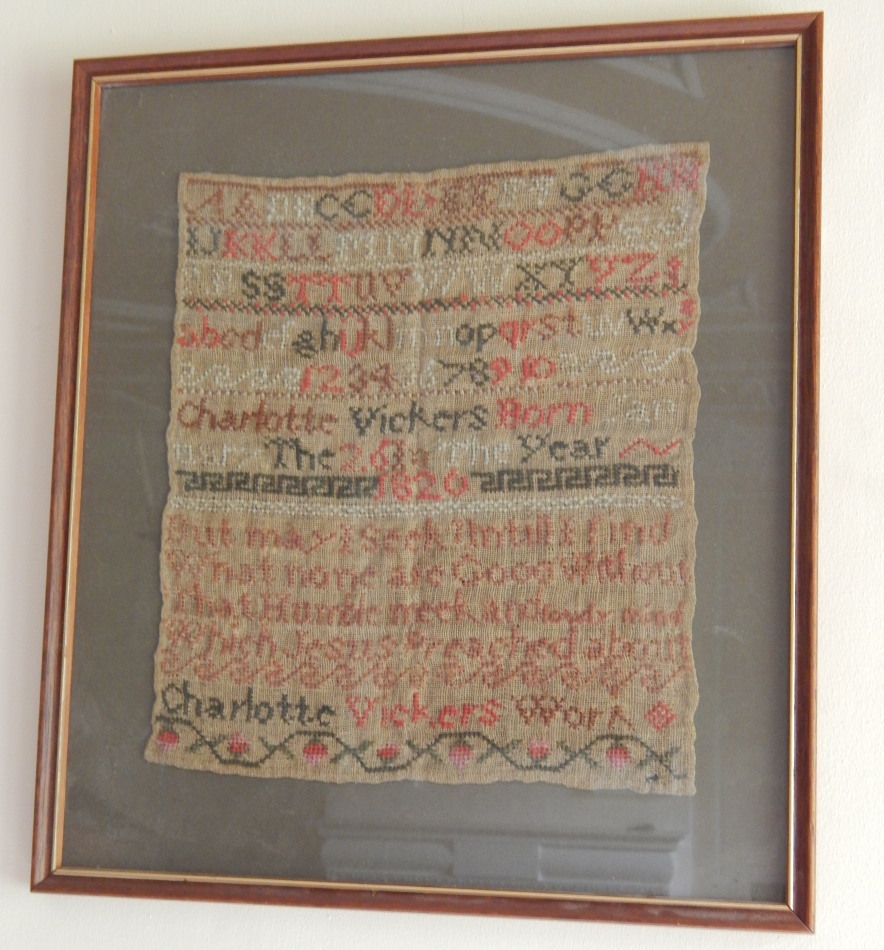 A A B B C C D D E E F F G G H H
I J K K L L M M N N O O P P Q Q
R R S S T T U V W W X Y Y Z
abcdefghijklmnopqrstuvwx
1 2 3 4 5 6 7 8 9 10
Charlotte Vickers Born Jan
The 26 The Year
1820
But may I Seek Untill I find
What none are Good Without
That Humble meek and mind
Which Jesus Preached about
Charlotte Vickers Work